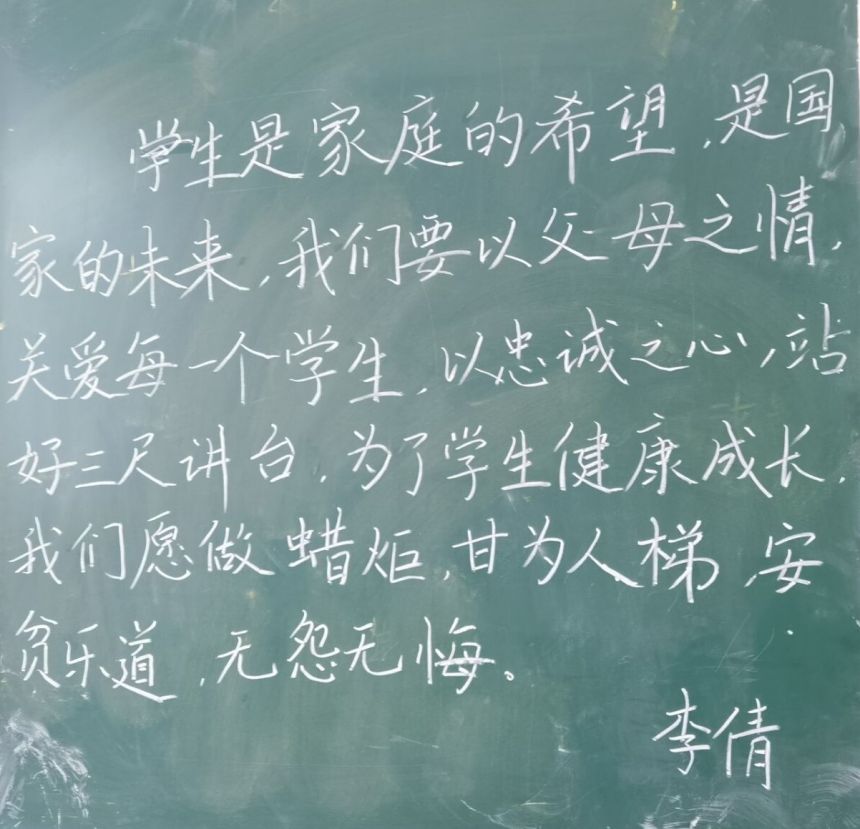 学生是家庭的希望,是国
家的未来,我们要以父母之情,
关爱每一个学生,以忠诚之心,站
好三尺讲台,为了学生健康成长,
我们愿做蜡炬,甘为人梯,安
贫乐道,无怨无悔。
李倩